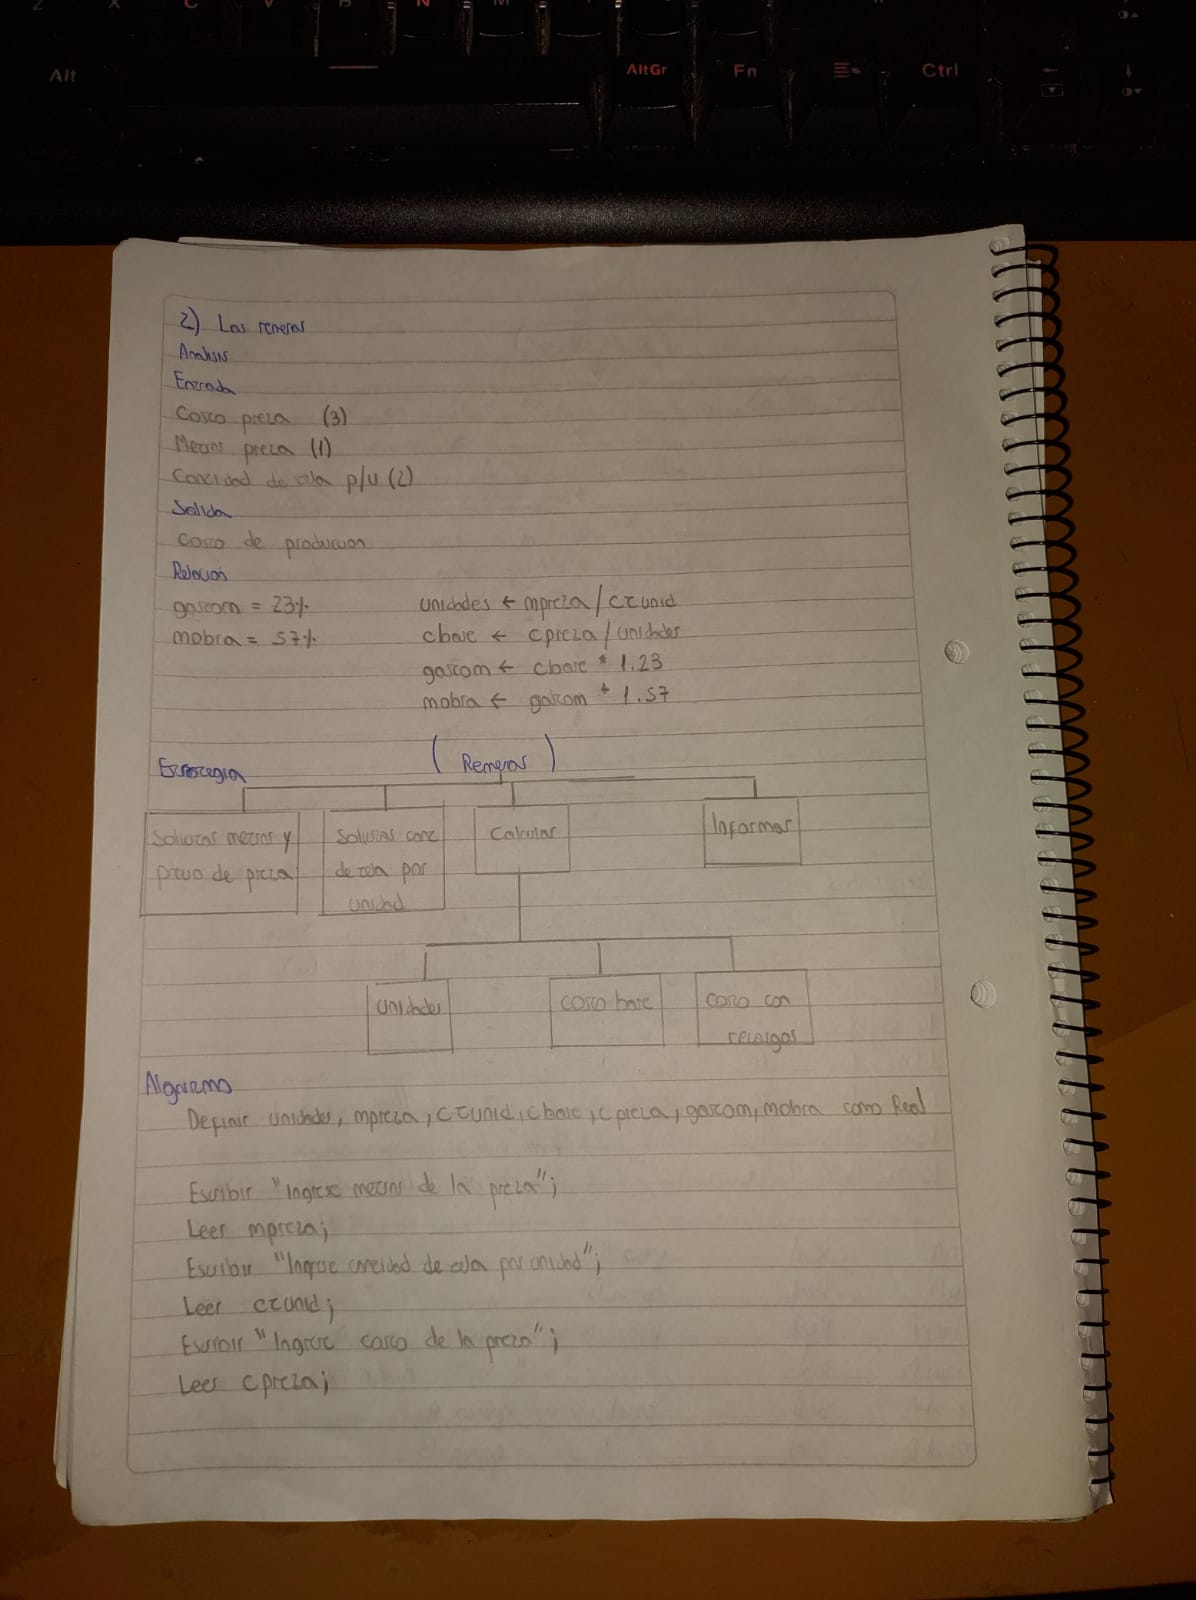 Alt
AltGr
Fn
Ctrl
2) Las remeras
Analisis
Entrada
Costo pieza (3)
Metros pieza (1)
Cantidad de tela p/u (2)
Salida
Costo de produccion
Relacion
gastom = 23% unidades ← mpieza / ctunid
mobra = 57% cbase ← cpieza / unidades
gastom ← cbase * 1.23
mobra ← gastom * 1.57
Estrategia ( Remeras )
Solicitar metros y Solicitar cant Calcular Informar
precio de pieza de tela por
unidad
unidades costo base costo con
recargos
Algoritmo
Definir unidades, mpieza, ctunid, cbase, cpieza, gastom, mobra como Real
Escribir "Ingrese metros de la pieza";
Leer mpieza;
Escribir "Ingrese cantidad de tela por unidad";
Leer ctunid;
Escribir "Ingrese costo de la pieza";
Leer cpieza;